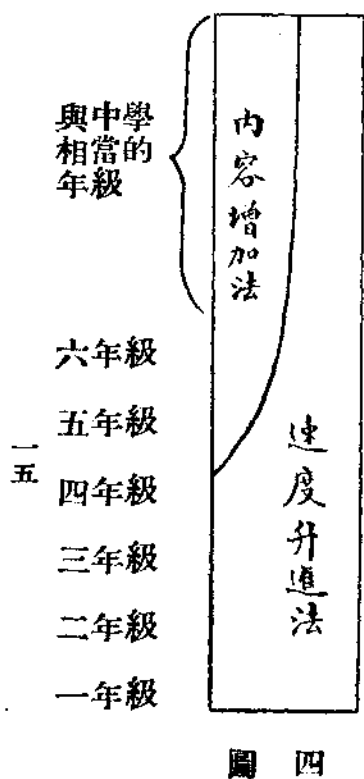 與中學
相當的
年級
內容增加法
六年級
五年級
四年級
三年級
二年級
一年級
速度升進法
圖四
一五